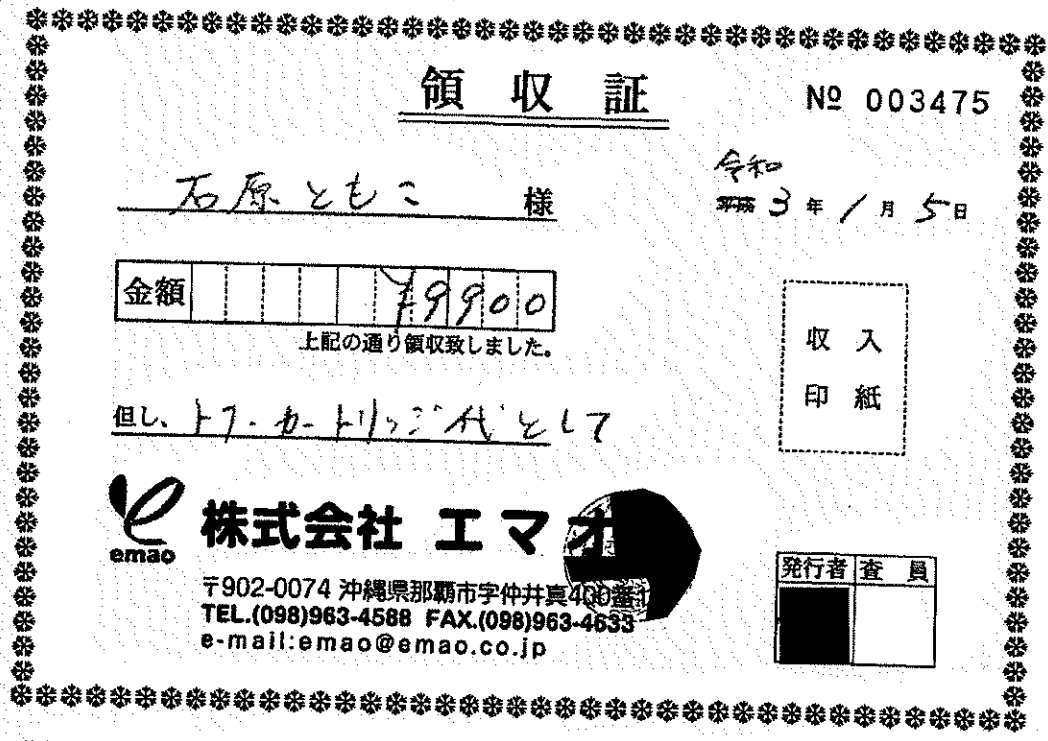 領収証
№ 003475
令和
平成 3年1月5日
石原ともこ 様
金額 ¥9900
上記の通り領収致しました。
但し、トナーカートリッジ代として
収入
印紙
emao
株式会社 エマオ
〒902-0074 沖縄県那覇市字仲井真400番1
TEL.(098)963-4588 FAX.(098)963-4633
e-mail:emao@emao.co.jp
発行者 査員